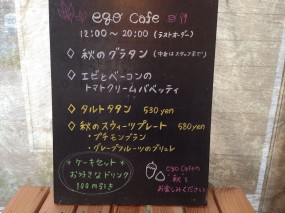 ego cafe
12:00～20:00(ラストオーダー)
◇秋のグラタン
◇エビとベーコンの
トマトクリームパパベッティ
◇タルトタタン 530yen
◇秋のスウィーツプレート 580yen
・プチモンブラン
・グレープフルーツのブリュレ
*ケーキセット*
お好きなドリンク
100円引き
ego cafeの
"秋"を
お楽しみください